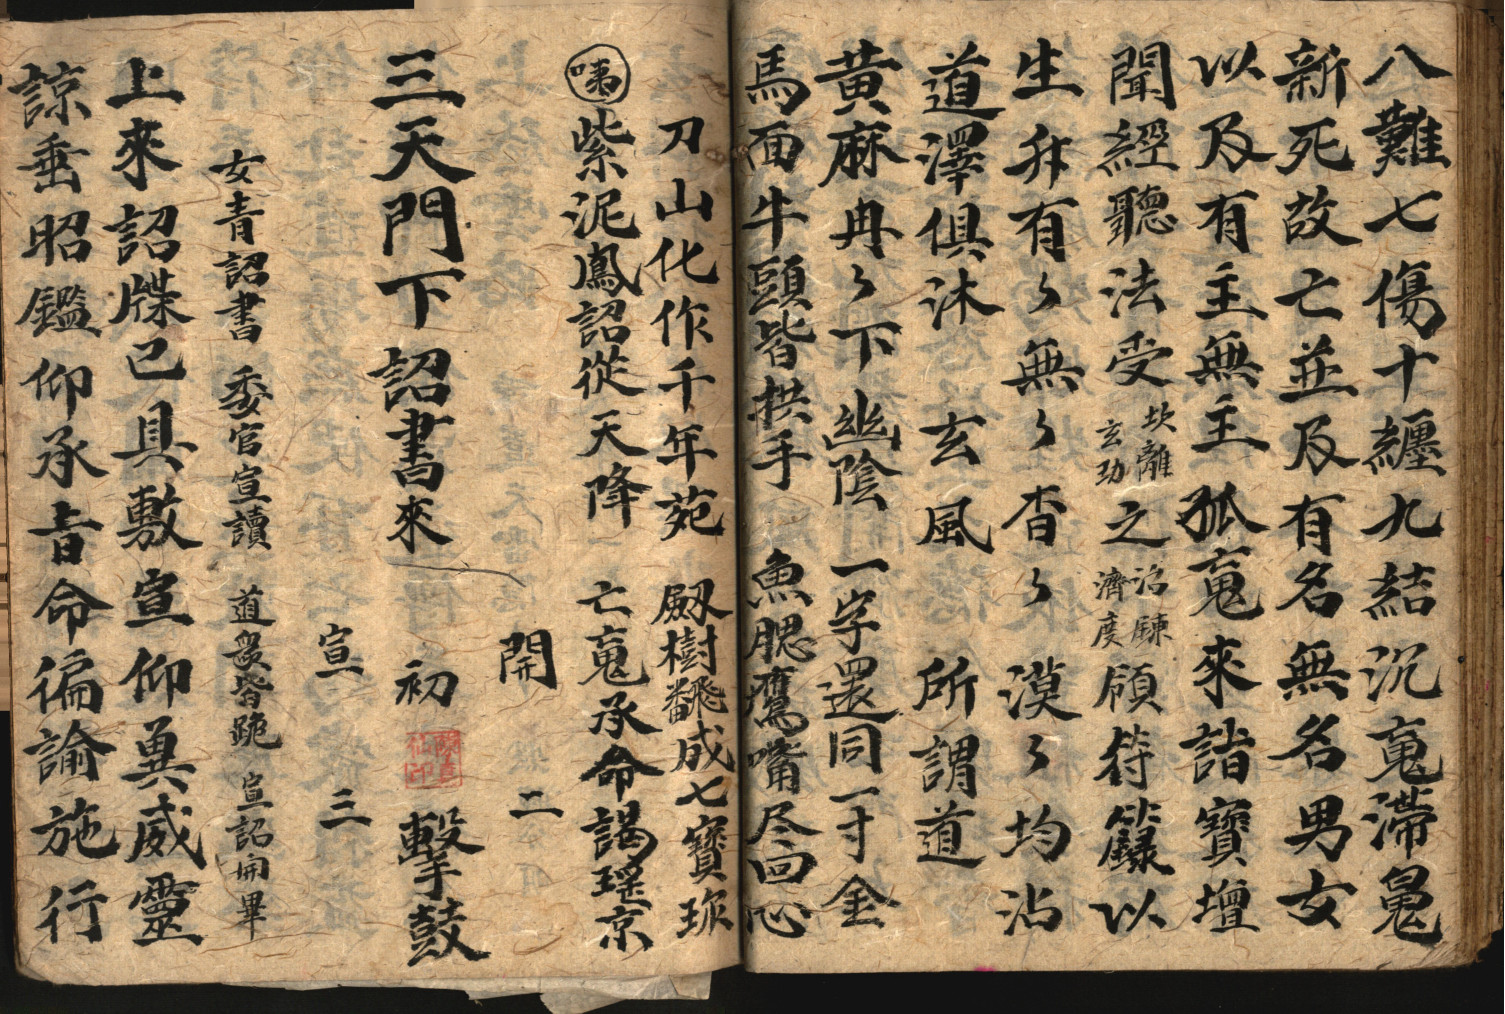 八難七傷十纏九結沉䰟滯鬼
新死故亡並及有名無名男女
以及有主無主孤䰟來詣寶壇
聞經聽法受坎離玄功之治鍊濟度頋符籙以
生升有〻無〻杳〻漠〻均沾
道澤俱沐玄風 所謂道
黃麻冉〻下幽陰 一字還同一寸金
馬面牛頭皆拱手 魚腮鷹嘴尽回心
刀山化作千年苑 劔樹飜成七寶珎
咦紫泥鳳詔從天降 亡䰟承命謁瑤京
開 二
三天門下詔書來 初 擊鼓
宣 三
女青詔書 委官宣讀 道衆皆跪 宣詔開畢
上來詔牒已具敷宣仰兾威靈
諒垂昭鑑仰承㫖命徧諭施行